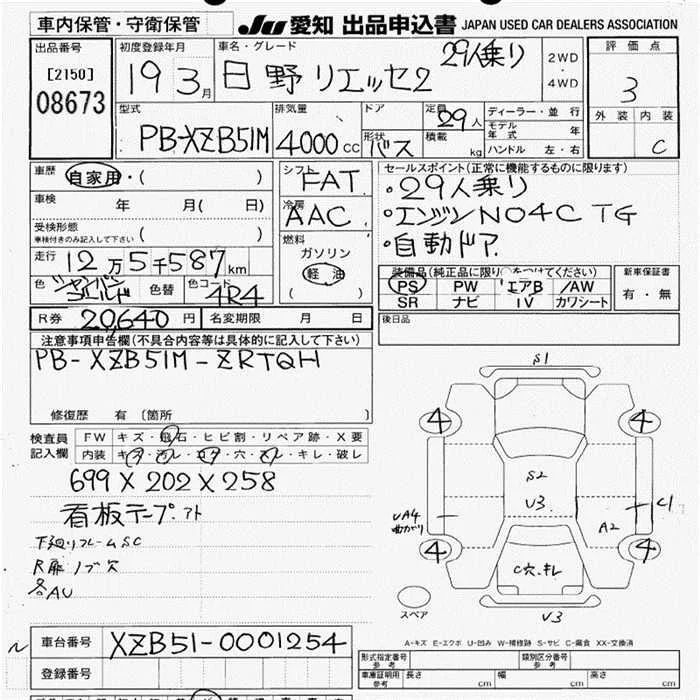 車内保管・守衛保管 JU 愛知 出品申込書 JAPAN USED CAR DEALERS ASSOCIATION
出品番号 初度登録年月 車名・グレード 29人乗り 2WD・4WD 評価点
[2150] 19 3月 日野 リエッセ2 3
08673 型式 排気量 ドア 定員 29人 ディーラー・並行 外装 内装
PB-XZB51M 4000cc 形状 バス 積載 kg モデル年式 年 C
ハンドル 左・右
車歴 自家用・( ) シフト FAT セールスポイント(正常に機能するものに限ります)
車検 年 月( 日) 冷房 AAC ・29人乗り
受検形態 ( ) ・エンジン N04C TG
車検付きのみ記入して下さい 燃料 ・自動ドア
走行 12万5千587km ガソリン 装備品(純正品に限り○をつけてください) 新車保証書
色 シャンパンゴールド 色替 色コード 4R4 軽油 PS PW エアB AW 有・無
( ) SR ナビ TV カワシート
R券 20,640円 名変期限 月 日 後日品
注意事項申告欄(不具合内容等は具体的に記入して下さい)
PB-XZB51M-ZRTQH
修復歴 有 [箇所 ]
検査員記入欄 FW キズ・飛石・ヒビ割・リペア跡・X要
内装 キズ・汚レ・コゲ・穴・スレ・キレ・破レ
699×202×258
看板テープアト
下廻リフレームSC
R扉ノブ穴
各AU
S1
4 4
S2
V3
UA4 曲ガリ A2 C1
4 4
C穴.キレ
スペア V3
A-キズ E-エクボ U-凹み W-補修跡 S-サビ C-腐食 XX-交換済
車台番号 XZB51-0001254
登録番号
形式指定番号 参考 類別区分番号 参考
車庫証明用 参考 長さ cm 幅 cm 高さ cm